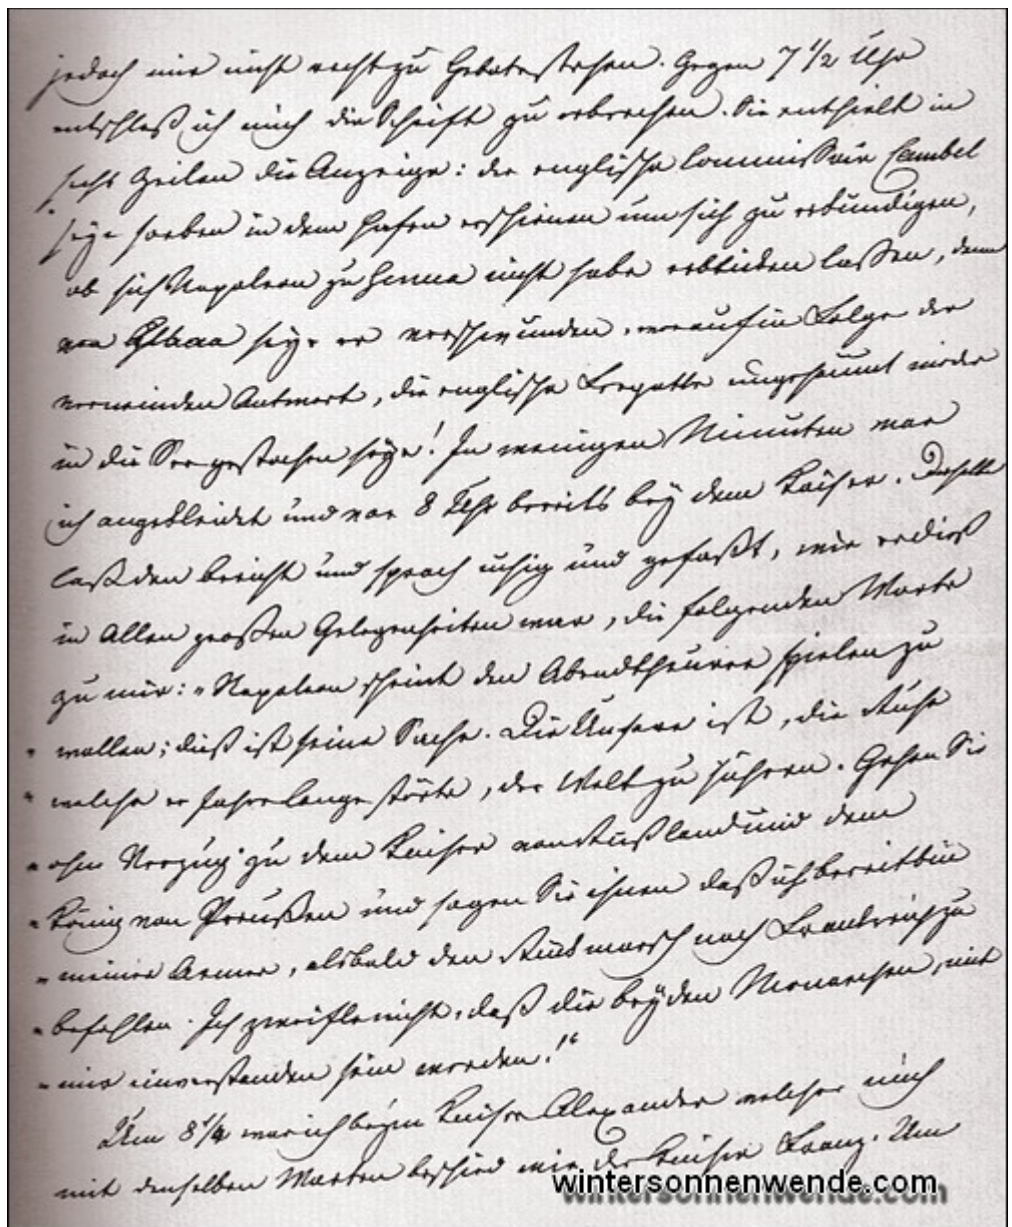 jedoch mir nicht recht zu Gebote stehen. Gegen 7 1/2 Uhr
entschloß ich mich die Schrift zu erbrechen. Sie enthielt in
sechs Zeilen die Anzeige: der englische Commissair Cambel
seye soeben in dem Hafen erschienen um sich zu erkundigen,
ob sich Napoleon zu Genua nicht habe erblicken lassen, denn
von Elbaa seye er verschwunden, worauf in Folge der
verneinden Antwort, die englische Fregatte ungesäumt wieder
in die See gestochen seye! In wenigen Minuten war
ich angekleidet und vor 8 Uhr bereits bey dem Kaiser. Derselbe
laß den bericht und sprach ruhig und gefaßt, wie er dieß
in Allen großen Gelegenheiten war, die folgenden Worte
zu mir: „Napoleon scheint den Abendtheurer spielen zu
„ wollen; dieß ist seine Sache. Die Unsere ist, die Ruhe
„ welche er Jahre lange störte, der Welt zu sichern. Gehen Sie
„ ohne Verzug zu dem Kaiser von Rußland und dem
„ König von Preußen und sagen Sie ihnen daß ich bereit bin
„ meiner Armee, alsbald den Rückmarsch nach Frankreich zu
„ befehlen. Ich zweifle nicht, daß die beyden Monarchen, mit
„ mir einverstanden sein werden!“
Um 8 1/4 war ich beym Kaiser Alexander welcher mich
mit denselben Worten beschied wie der Kaiser Franz. Um
wintersonnenwende.com